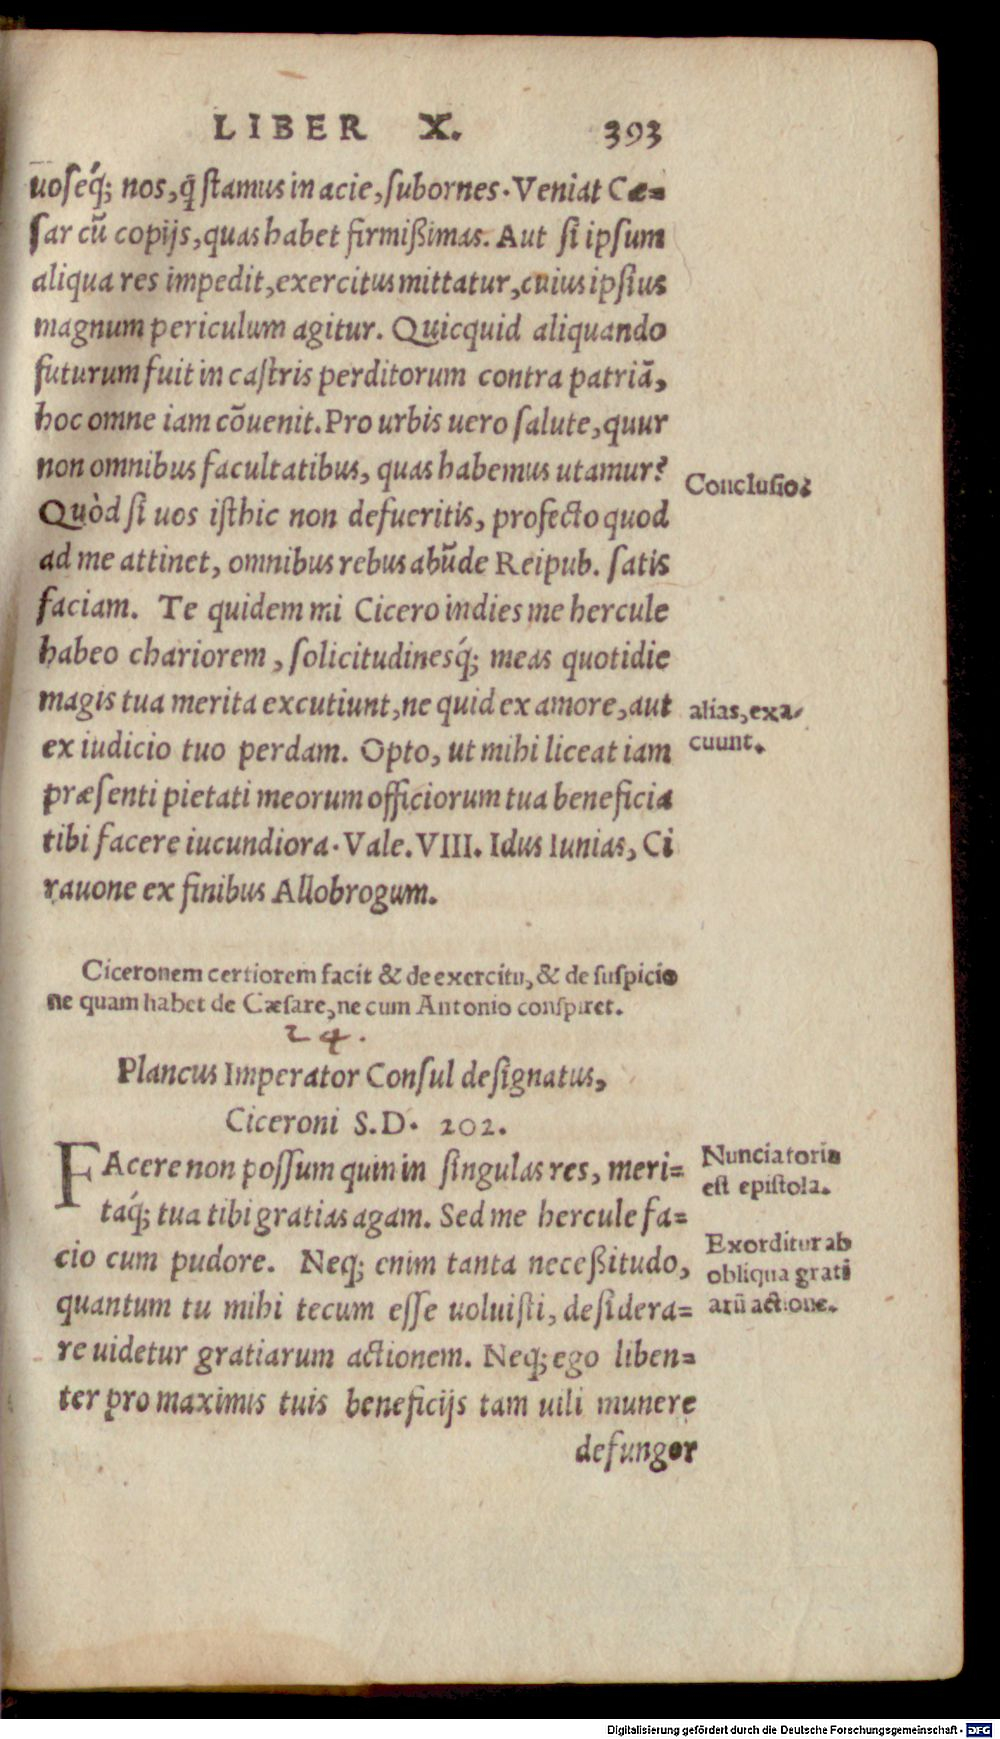 LIBER X. 393
uoſeq́; nos, q̃ ſtamus in acie, ſubornes. Veniat Cæ=
ſar cũ copijs, quas habet firmißimas. Aut ſi ipſum
aliqua res impedit, exercitus mittatur, cuius ipſius
magnum periculum agitur. Quicquid aliquando
futurum fuit in caſtris perditorum contra patriã,
hoc omne iam cõuenit. Pro urbis uero ſalute, quur
non omnibus facultatibus, quas habemus utamur?
Conclusio.
Quòd ſi uos iſthic non defueritis, profecto quod
ad me attinet, omnibus rebus abũde Reipub. ſatis
faciam. Te quidem mi Cicero indies me hercule
habeo chariorem, ſolicitudinesq́; meas quotidie
magis tua merita excutiunt, ne quid ex amore, aut
alias, exa-
cuunt.
ex iudicio tuo perdam. Opto, ut mihi liceat iam
præſenti pietati meorum officiorum tua beneficia
tibi facere iucundiora. Vale. VIII. Idus Iunias, Ci
rauone ex finibus Allobrogum.
Ciceronem certiorem facit & de exercitu, & de suspicio
ne quam habet de Cæsare, ne cum Antonio conspiret.
24.
Plancus Imperator Conſul deſignatus,
Ciceroni S.D. 202.
FAcere non poſſum quin in ſingulas res, meri=
taq́; tua tibi gratias agam. Sed me hercule fa=
cio cum pudore. Neq; enim tanta neceßitudo,
quantum tu mihi tecum eſſe uoluiſti, deſidera=
re uidetur gratiarum actionem. Neq; ego liben=
ter pro maximis tuis beneficijs tam uili munere
defungor
Nunciatoria
est epistola.
Exorditur ab
obliqua grati
arũ actione.
Digitalisierung gefördert durch die Deutsche Forschungsgemeinschaft - DFG